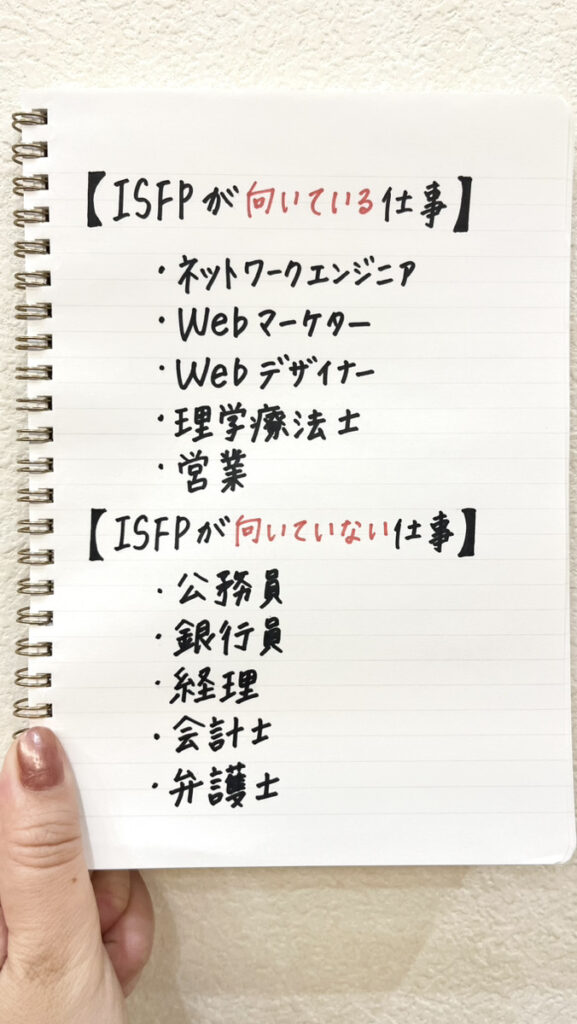 【ISFPが向いている仕事】
・ネットワークエンジニア
・Webマーケター
・Webデザイナー
・理学療法士
・営業
【ISFPが向いていない仕事】
・公務員
・銀行員
・経理
・会計士
・弁護士